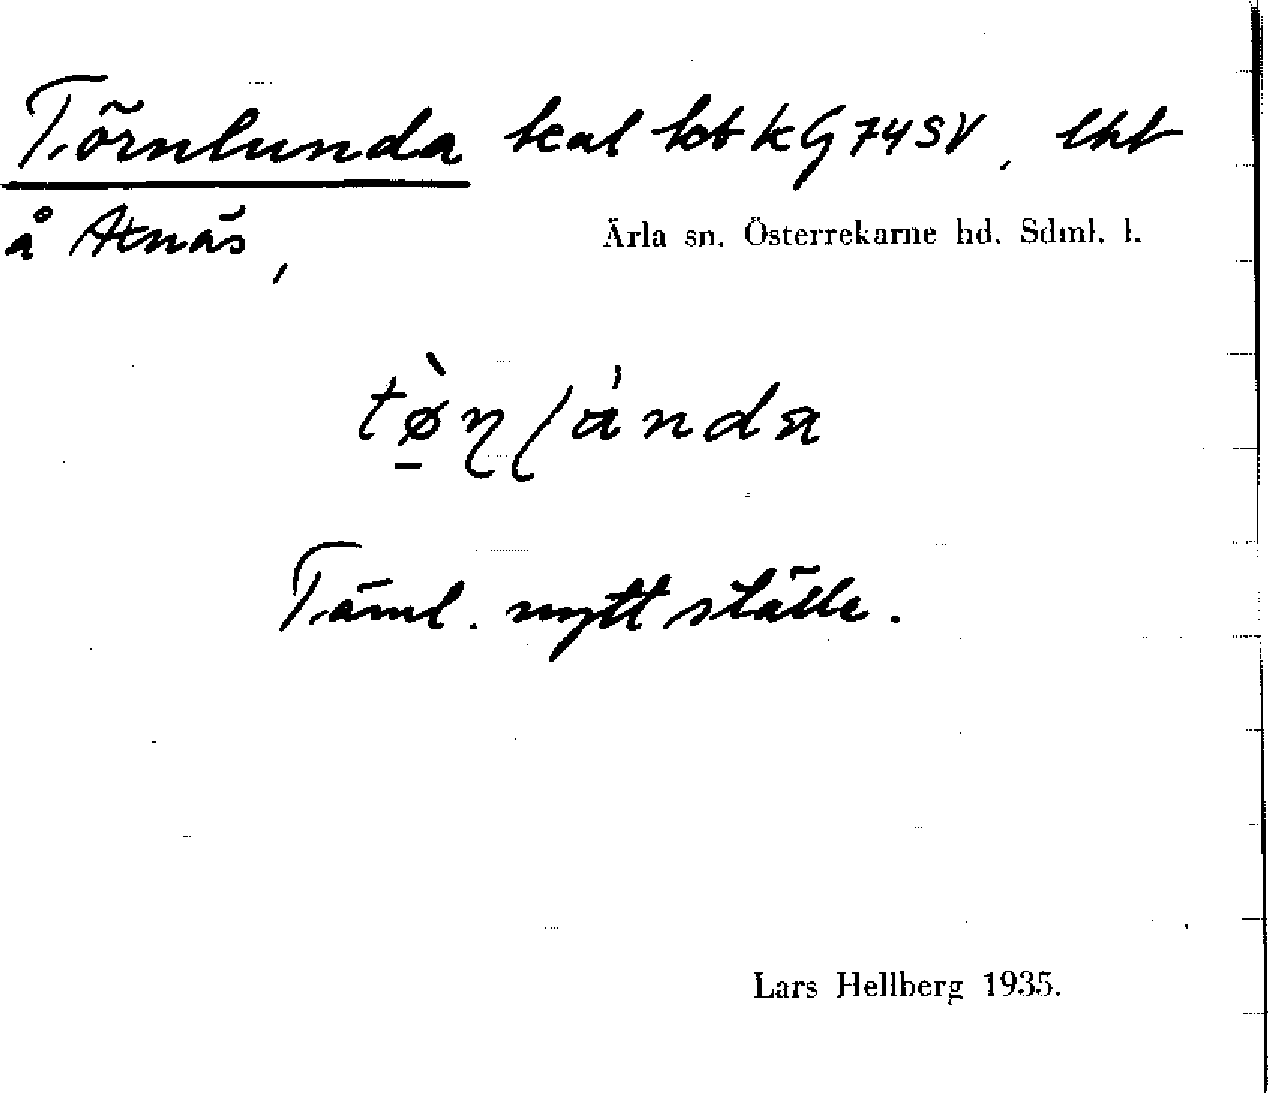 Törnlunda kal kbt kG74SV, lht
å Åsnäs,
Ärla sn. Österrekarne hd. Sdml. l.
tø̀n/ánda
Täml. nytt ställe.
Lars Hellberg 1935.